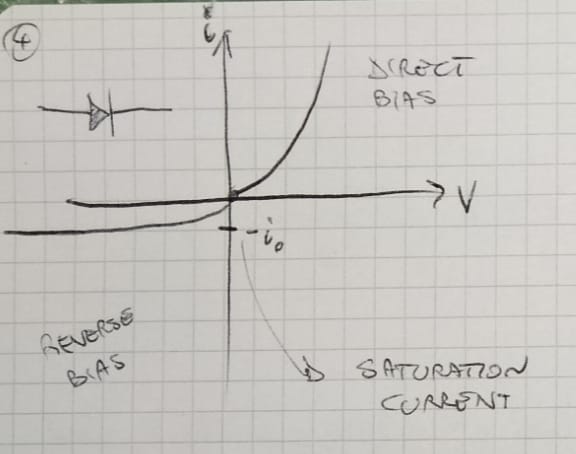 4
i
DIRECT
BIAS
V
-i₀
REVERSE
BIAS
SATURATION
CURRENT